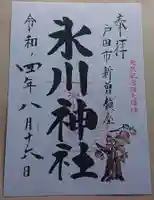 奉拝
戸田市新曽鎮座
氷川神社
令和四年八月十六日